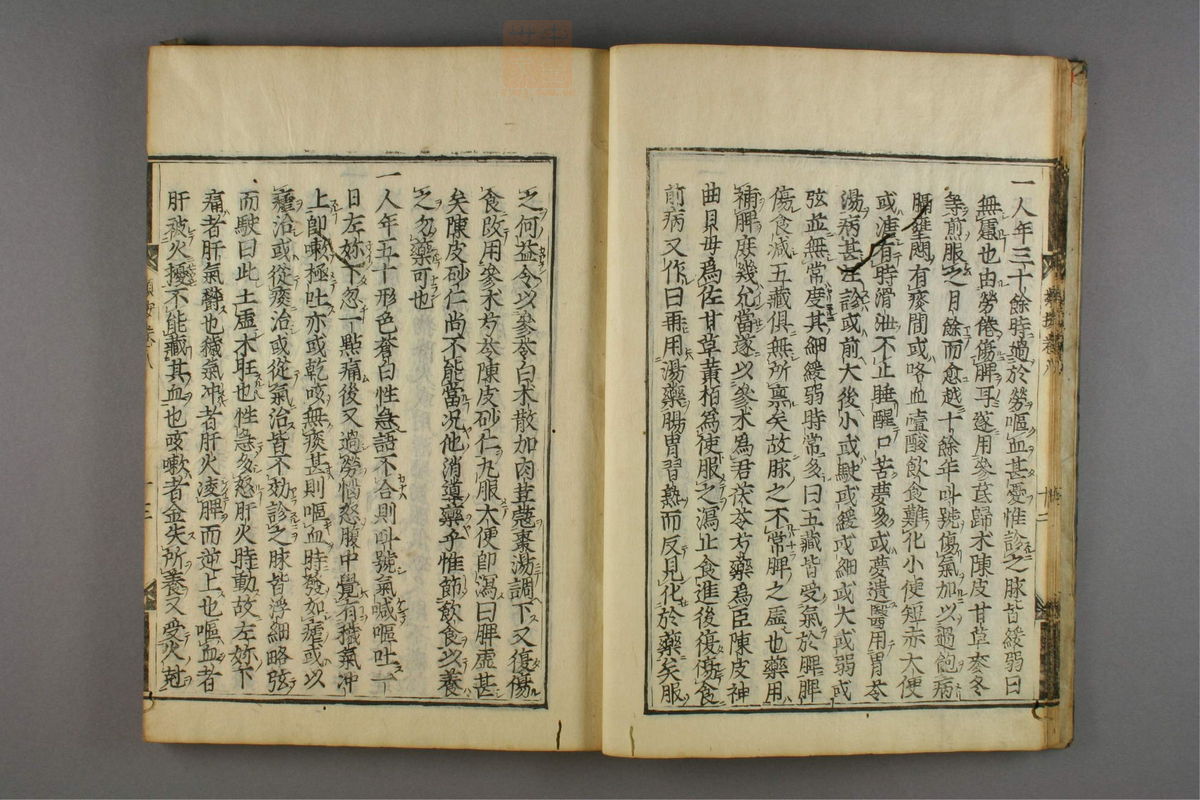 一人年三十餘時過於勞嘔血甚憂惟診之脉皆緩弱曰
無慮也由勞倦傷脾耳遂用參芪歸术陳皮甘草麥冬
等煎服之月餘而愈越十餘年叫號傷氣加以過飽病
膈壅悶有痰間或咯血噫酸飲食難化小便短赤大便
或溏有時滑泄不止睡醒口苦夢多或夢遺醫用胃苓
湯病甚診或前大後小或駛或緩或細或大或弱或
弦並無常度其細緩弱時常多曰五藏皆受氣於脾脾
傷食减五藏俱無所禀矣故脉之不常脾之虛也藥用
補脾庶幾允當遂以參术為君茯苓芍藥為臣陳皮神
曲貝母爲佐甘草黄栢爲使服之瀉止食進後復傷食
前病又作曰再用湯藥腸胃習熟而反見化於藥矣服
之何益令以參苓白术散加肉荳蔻棗湯調下又復傷
食改用參术芍苓陳皮砂仁丸服大便卽瀉曰脾虛甚
矣陳皮砂仁尚不能當况他消導藥乎惟節飲食以養
之勿藥可也
一人年五十形色蒼白性急語不合則叫號氣喊嘔吐一
日左妳下忽一點痛後又過勞惱怒腹中覺有穢氣冲
上卽嗽極吐亦或乾咳無痰甚則嘔血時發如瘧或以
瘧治或從痰治或從氣治皆不効診之脉皆浮細略弦
而駛曰此土虛木旺也性急多怒肝火時動故左妳下
痛者肝氣鬱也穢氣冲者肝火凌脾而逆上也嘔血者
肝被火擾不能藏其血也咳嗽者金失所養又受火剋
十二